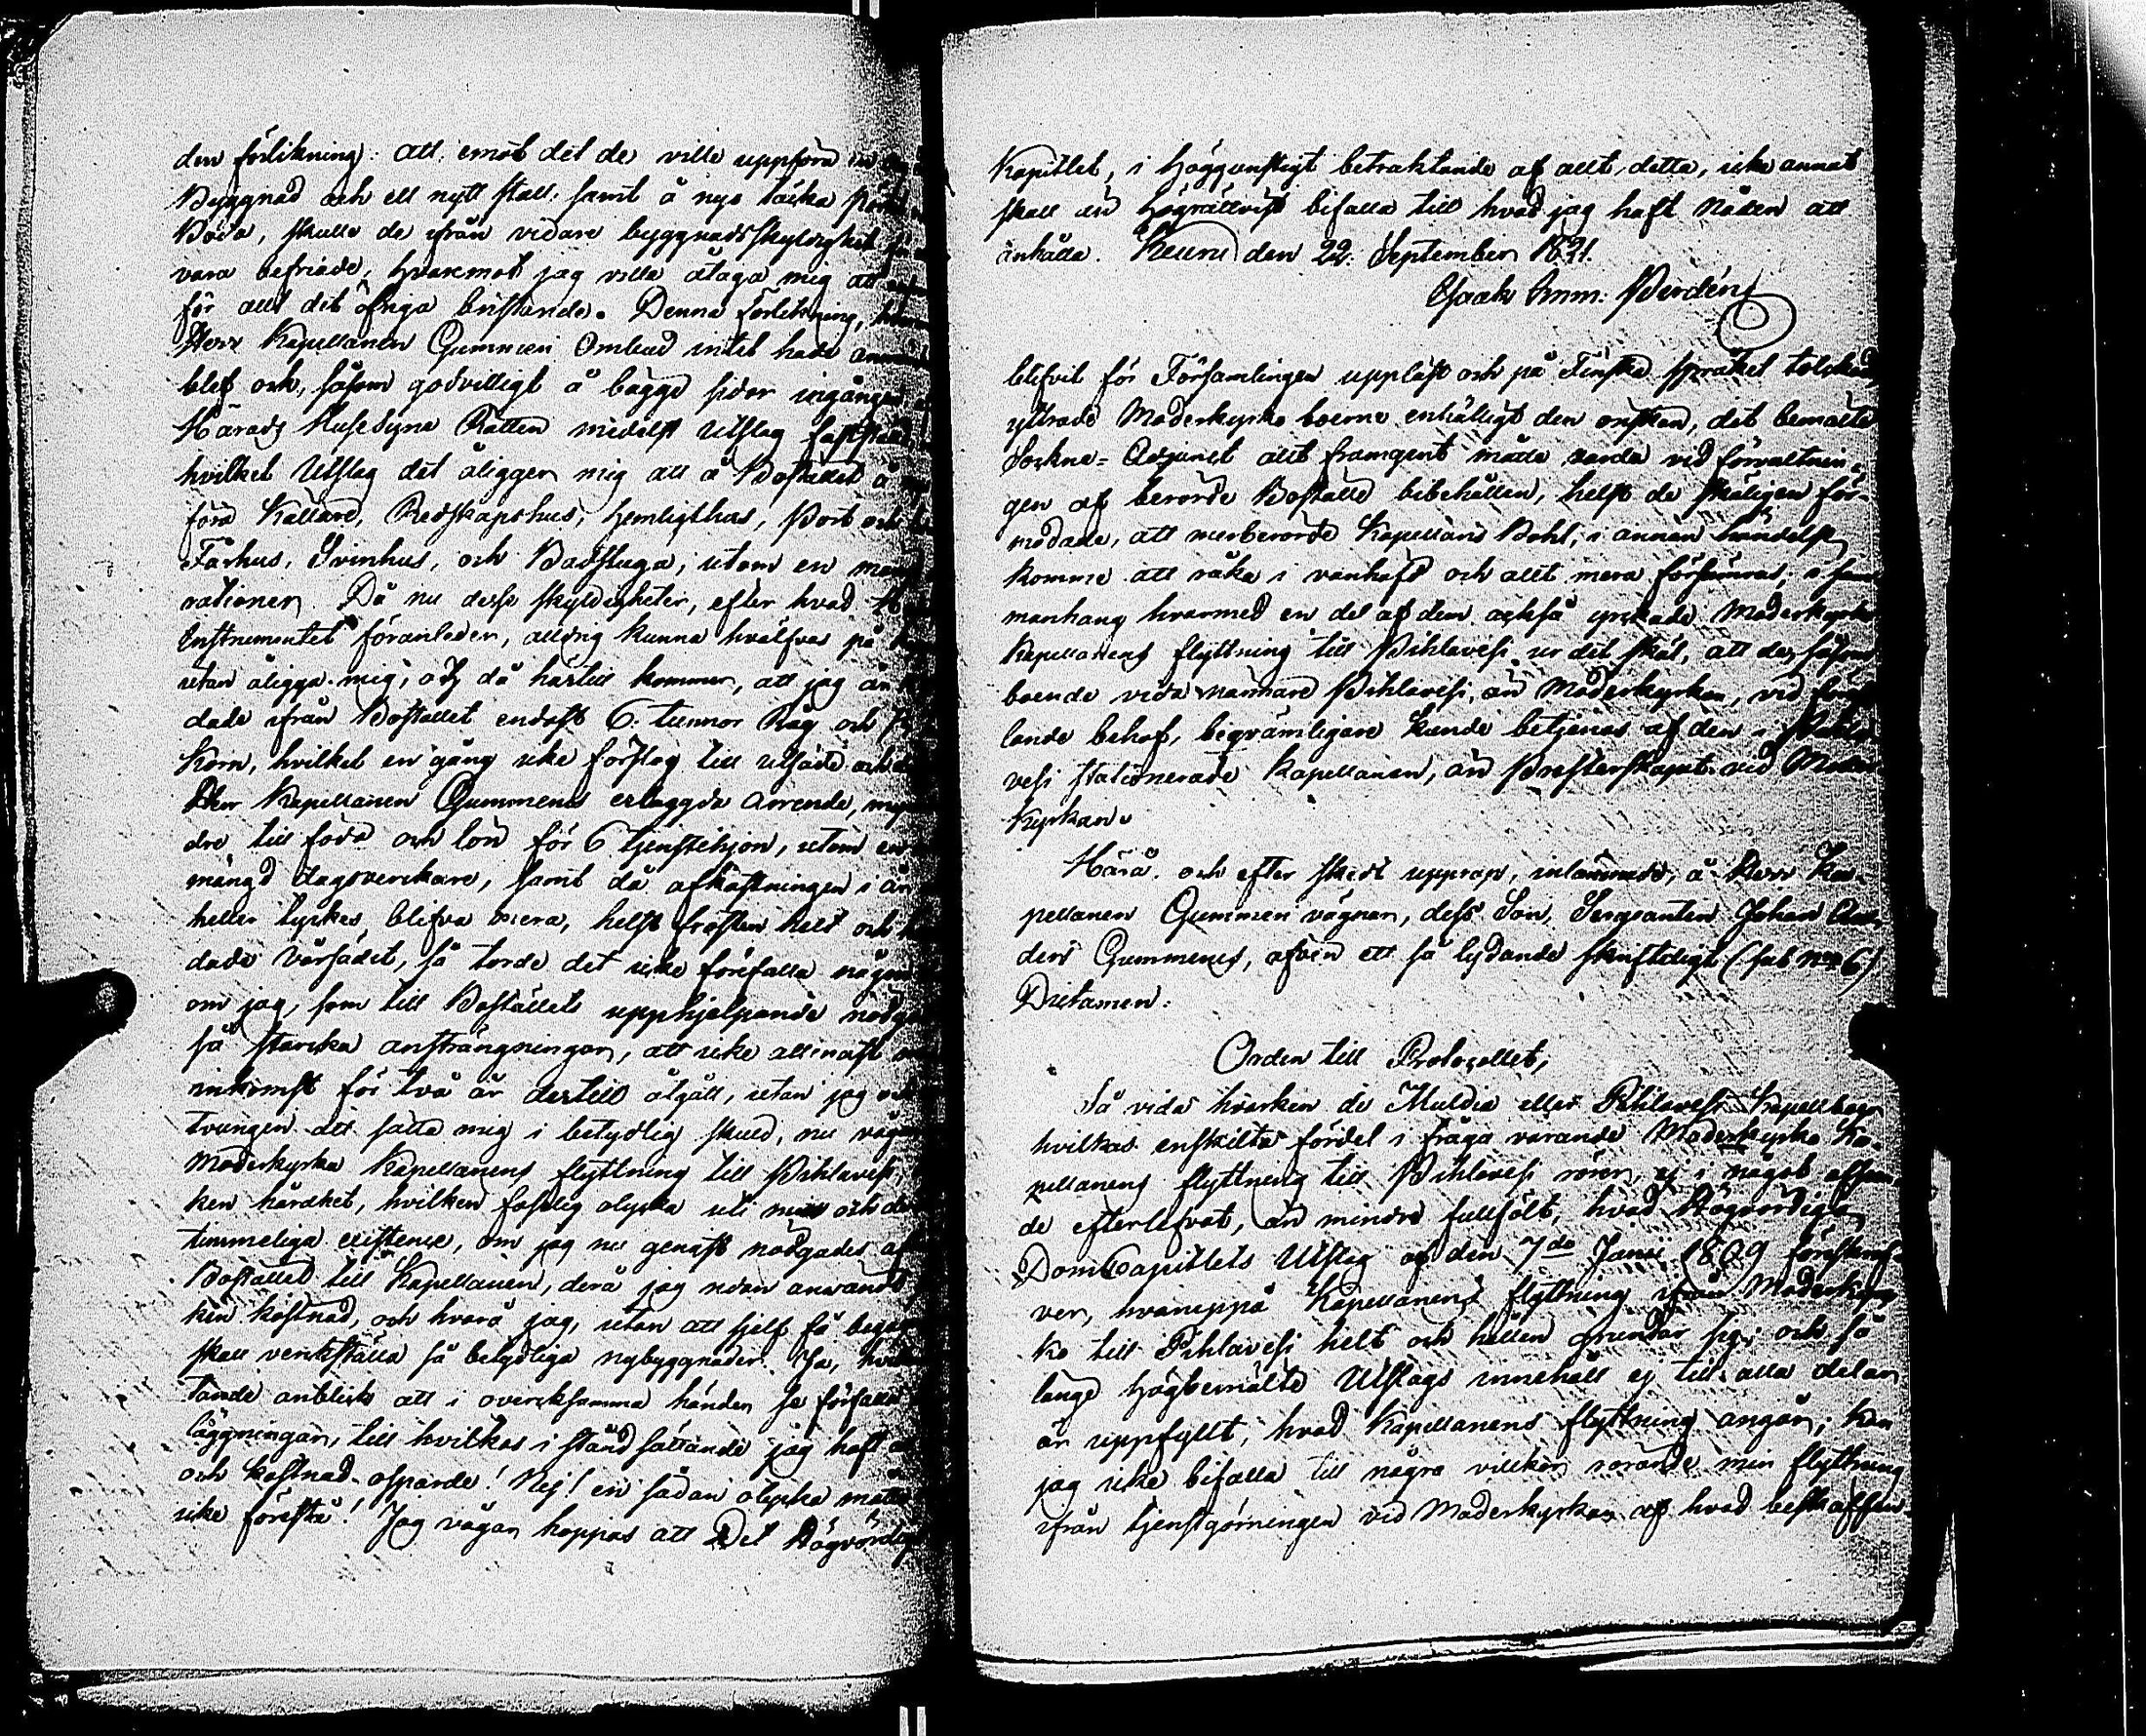 den förlikning: att, emot det de ville uppföra en
Byggnad och ett nytt stall, samt å nyo täcka
Boda, skulle de ifrån vidare byggnadsskyldighet
vara befriade, hvaremot jag ville åtaga mig att
för allt det öfriga bristande. Denna Förlikning,
Herr Kapellanen Gummeri Ombud intet hade
blef och, såsom godvilligt å bägge sidor ingången
Härads Husesyns Rätten medelst Utslag
hvilket Utslag det åligger mig att å Bostället å
föra Källare, Redskapshus, Hemligthus, Port och
Fårhus, Svinhus, och Badstuga, utom en
rationer. Då nu dessa skyldigheter, efter hvad
Instrumentet föranleder, aldrig kunna hvälfvas på
utan åligga mig, och då härtill kommer, att jag
dade ifrån Bostället endast 6. tunnor Råg och
Korn, hvilket en gång icke förslog till utsäde och
Herr Kapellanen Gummerus erlaggda Arrende,
dre till föda och lön för 6 tjenstehjon, utom en
mängd dagsverckare, samt då afkastningen i år
heller lyckes blifva mera, helst frosten helt och
dade vårsädet, så torde det icke förefalla någon
om jag, som till Boställets upphjelpande
så starcka ansträngningar, att icke allenast
inkomst för två år dertill åtgått, utan jag
tvungen att sätta mig i betydlig skuld, nu
Moderkyrko Kapellanens flyttning till Pihlavesi,
ken hårdhet, hvilken faslig olycka uti min och
timmeliga existence, om jag nu genast nödgades
Bostället till Kapellanen, derå jag redan användt
ken kostnad, och hvarå jag, utan att sjelf få
skall verkställa så betydliga nybyggnader. Ja,
tande anblick att i overcksamma händer se
läggningar, till hvilkas i stånd sättande jag haft
och kostnad ospardt! Nej! en sådan olycka
icke förestå! Jag vågar hoppas att Det Högvördiga
Kapitlet, i höggunstigt betraktande af allt detta, icke annat
skall än högrättvist bifalla till hvad jag haft nåden att
anhålla. Keuru den 22. September 1821.
Isaak Imm: Perdén
blifvit för Församlingen uppläst och på Finska språket tolckad,
yttrade Moderkyrko boerne enhälligt den önskan, det bemälte
Sockne-Adjunct allt framgent måtte varda vid förvaltnin-
gen af berörde Boställe bibehållen, helst de skäligen för-
modade, att merberörde Kapellans Bohl, i annan händelse
komme att råka i vanhäfd och allt mera försämras, i sam-
manhang hvarmed en del af dem också yrckade Moderkyrko
Kapellanens flyttning till Pihlavesi ur det skäl, att de, såsom
boende vida närmare Pihlavesi, än Moderkyrkan, vid
lande behof, beqvämligare kunde betjenas af den i Pihla-
vesi stationerade Kapellanen, än Presterskapet vid Moder
Kyrkan.
Härå, och efter skedt upprop, inlämnade, å Herr Ka-
pellanen Gummeri vägnar, dess Son, Sergeanten Johan
ders Gummerus, äfven ett så lydande skriftligt (sub No 6)
Dictamen:
Orden till Protocollet,
Så vida hvarken de Muldia eller Pihlavesi Kapellboer
hvilkas enskilta fördel i fråga varande Moderkyrko Ka-
pellanens flyttning till Pihlavesi rörer, ej i något
de efterlefvat, än mindre fullföljt, hvad Högvördiga
DomCapitlets Utslag af den 7de Junii 1809 föreskrif-
ver, hvaruppå Kapellanens flyttning ifrån Moderkyr
ko till Pihlavesi helt och hållen grundar sig; och så
länge högbemälte Utslags innehåll ej till alla delar
är uppfyllt, hvad Kapellanens flyttning angår; kan
jag icke bifalla till några vilkor rörande min flyttning
ifrån tjenstgörningen vid Moderkyrkan af hvad beskaffen-